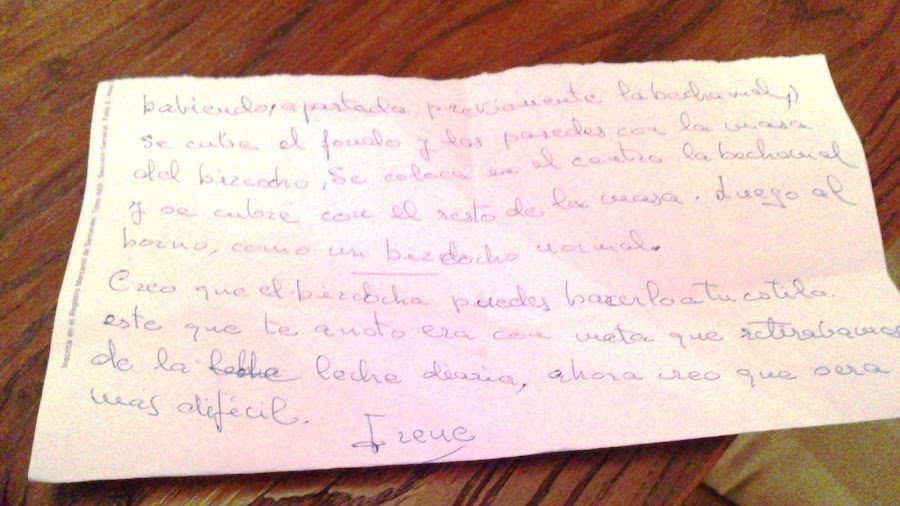 habiendo, apartada previamente la bechamel,)
se cubre el fondo y las paredes con la masa
del bizcocho, se coloca en el centro la bechamel
y se cubre con el resto de la masa. Luego al
horno, como un bizcocho normal.
Creo que el bizcocho puedes hacerlo a tu estilo.
este que te anoto era con nata que retirabamos
de la leche diaria, ahora creo que sera
más difícil.
Irene
Inscrita en el Registro Mercantil de Santander, Tomo 464, Sección General, Folio 5, Hoja